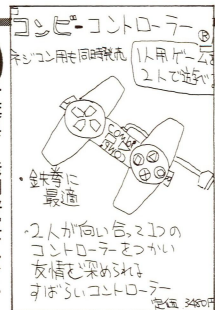 コンビーコントローラー®
ネジコン用も同時発売
1人用ゲームを
2人で
・鉄拳に
最適
・2人が向い合って1つの
コントローラーをつかい
友情を深められる
すばらいコントローラー
定価 3480円